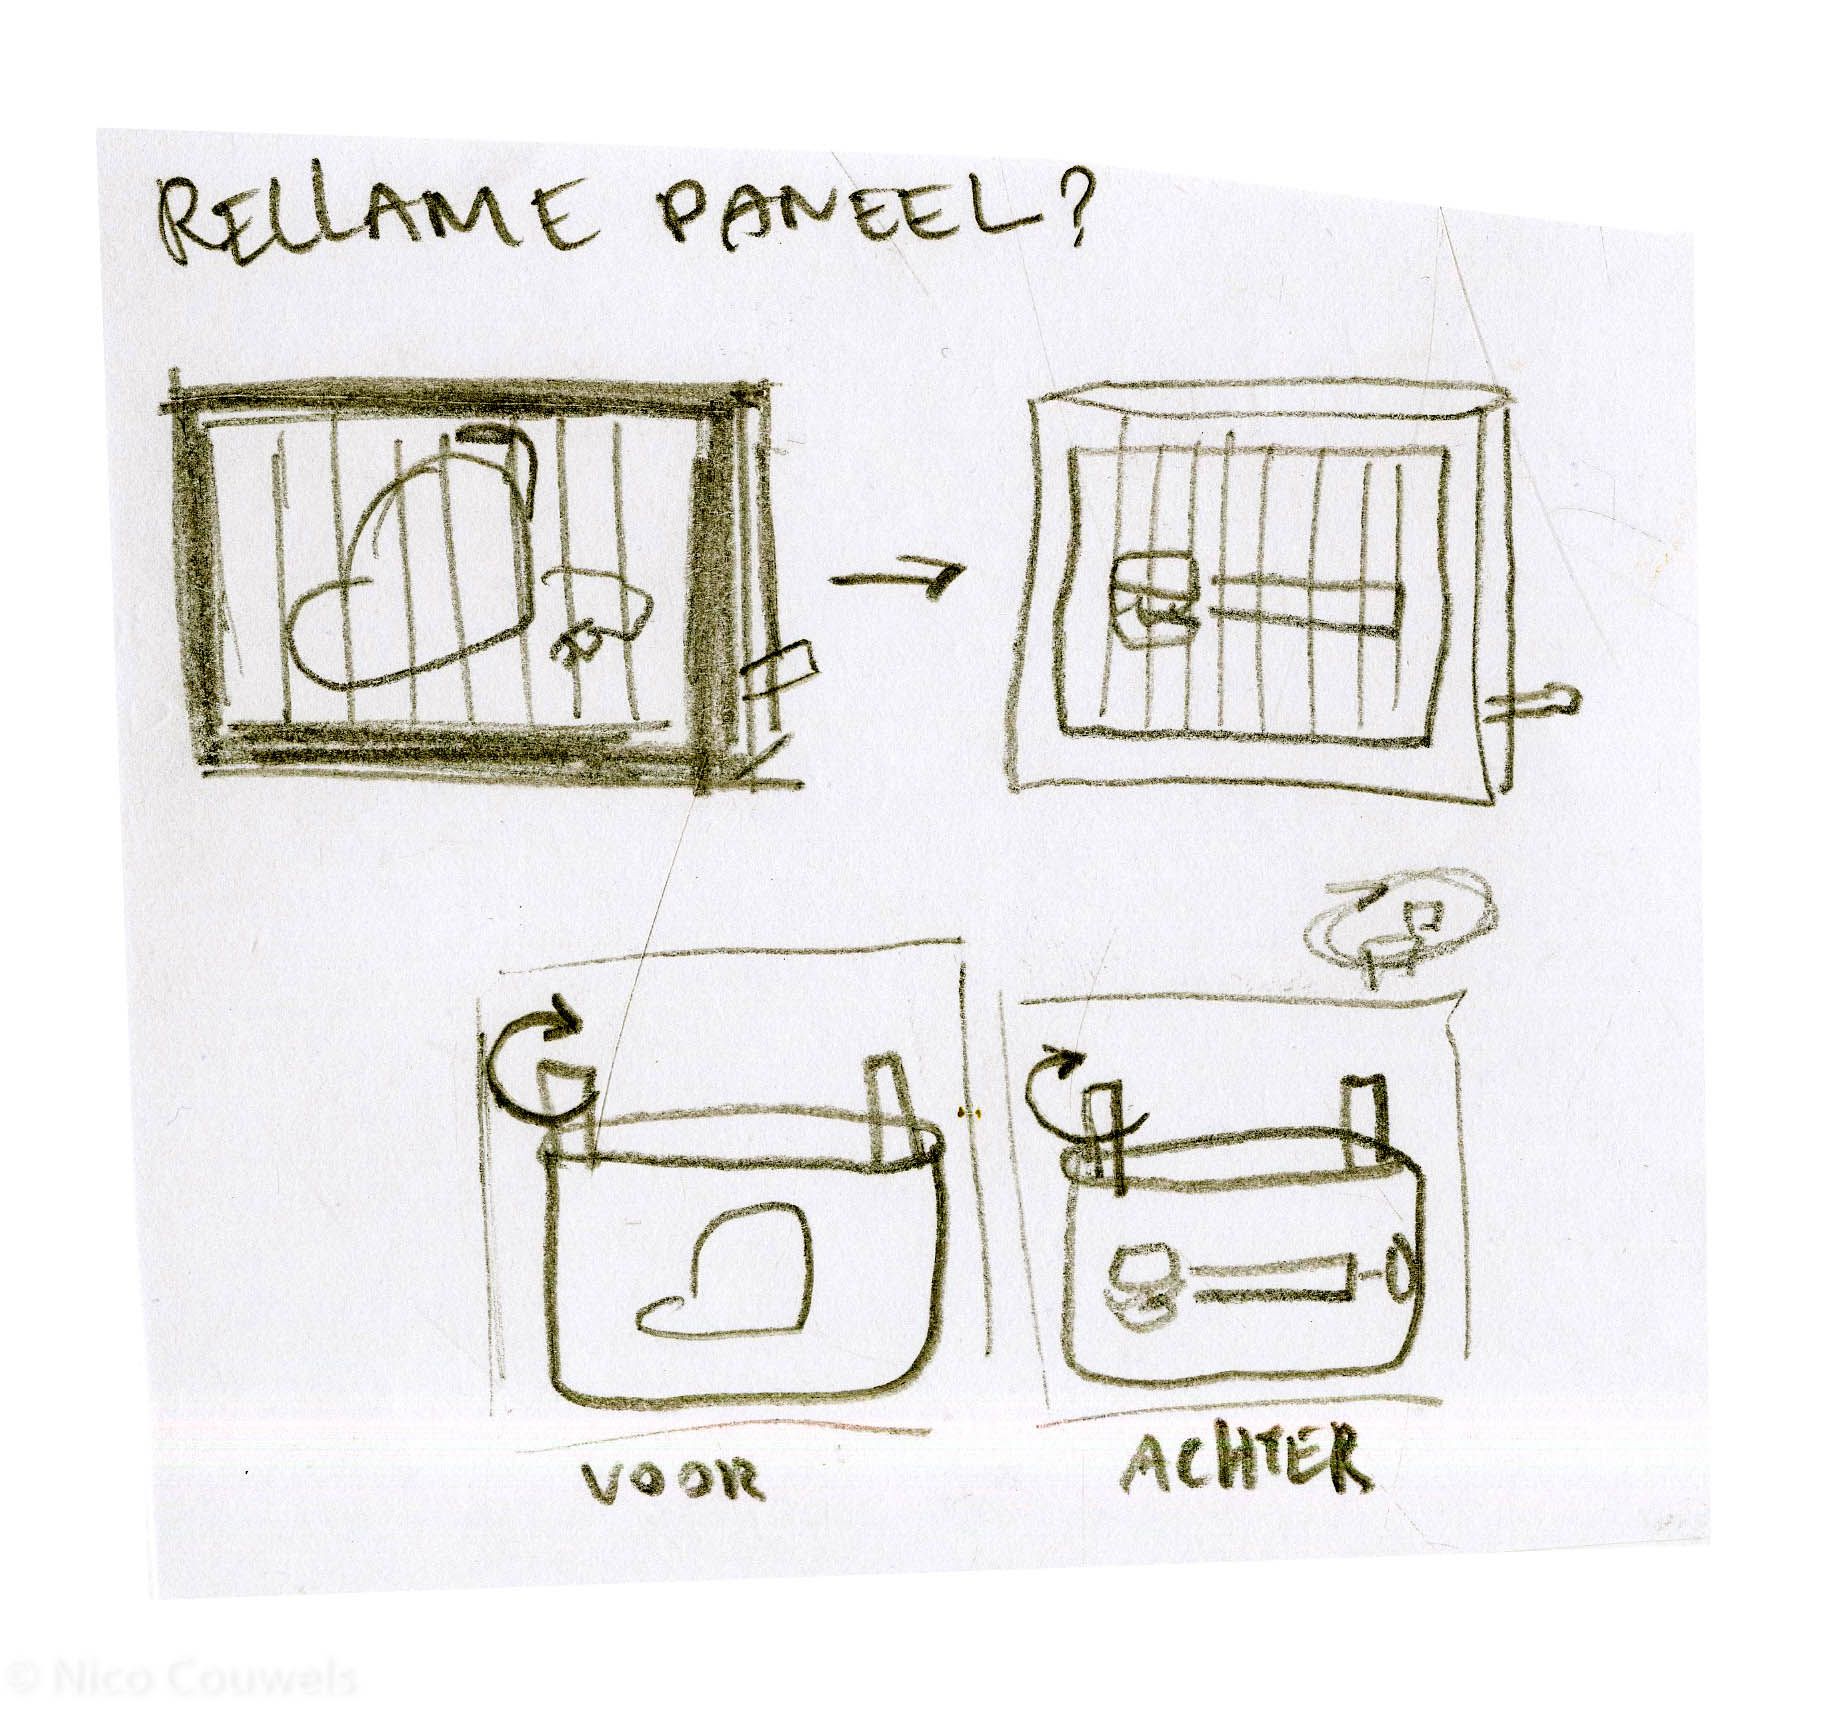 REKLAME PANEEL?
VOOR
ACHTER
© Nico Couwels